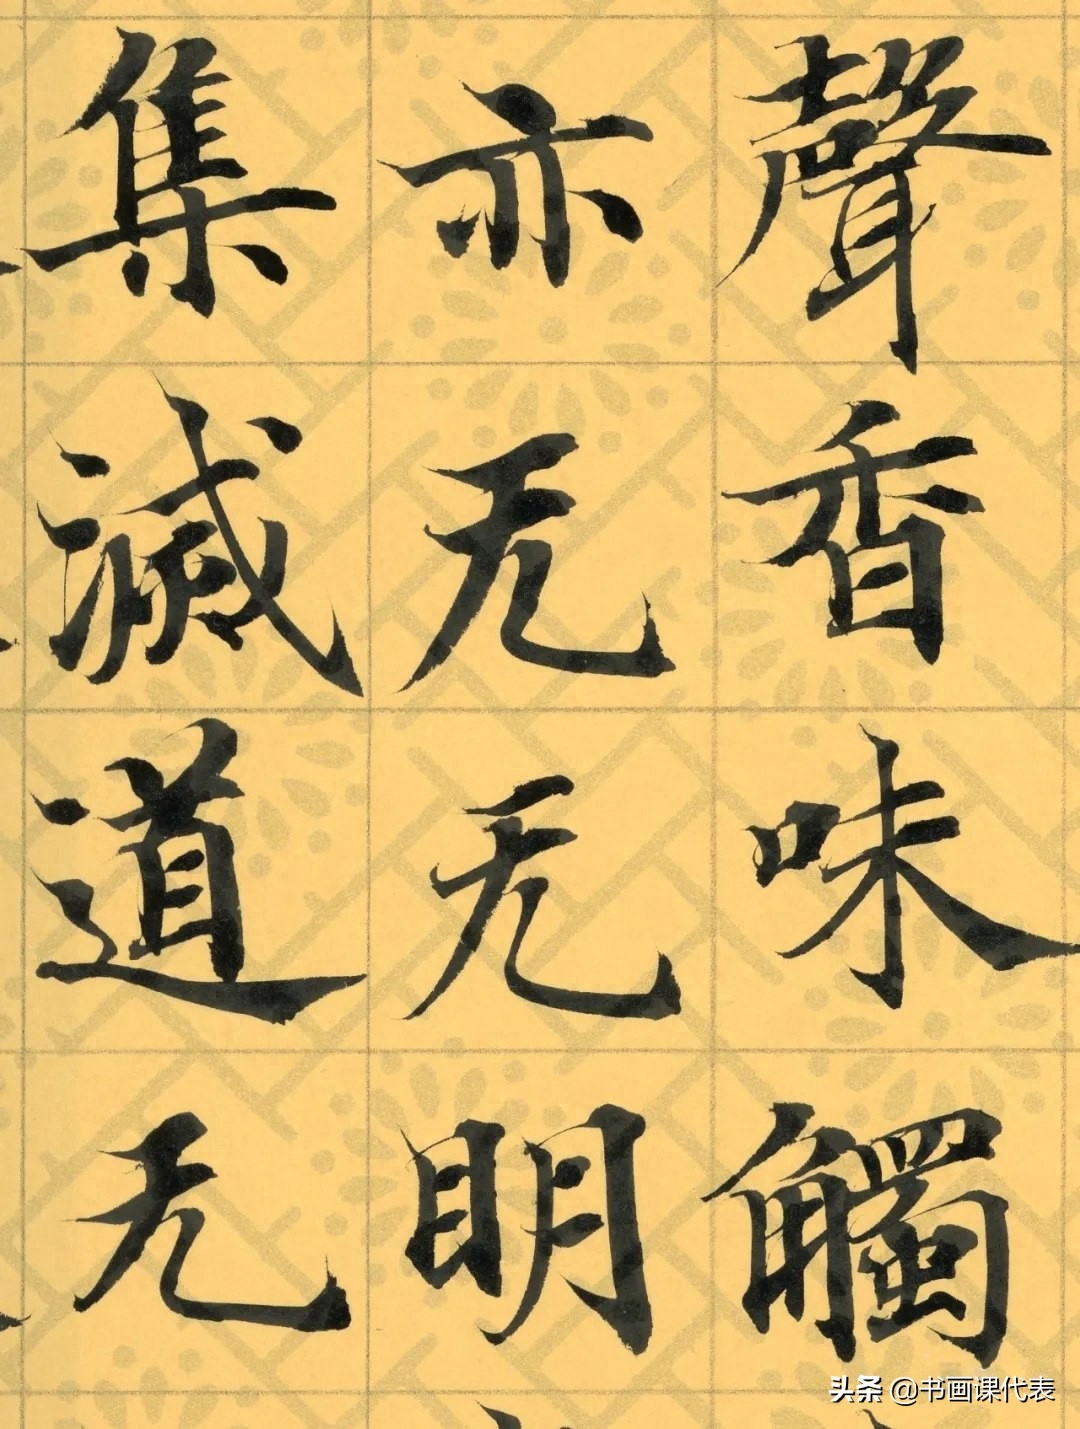 聲香味觸
亦无无明
集滅道无
头条 @书画课代表